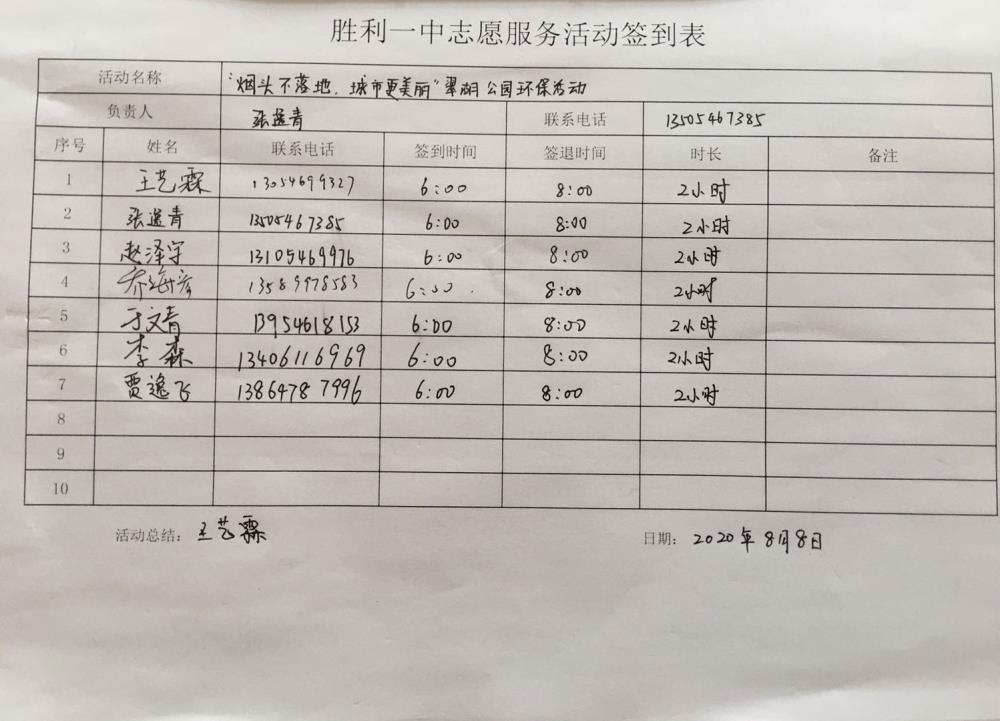 胜利一中志愿服务活动签到表
活动名称 "烟头不落地,城市更美丽"翠湖公园环保活动
负责人 张逸青 联系电话 13505467385
序号 姓名 联系电话 签到时间 签退时间 时长 备注
1 王艺霖 13054699327 6:00 8:00 2小时
2 张逸青 13505467385 6:00 8:00 2小时
3 赵泽宇 13105469976 6:00 8:00 2小时
4 乔海彦 13589978583 6:00 8:00 2小时
5 于文青 13954618153 6:00 8:00 2小时
6 李森 13406116969 6:00 8:00 2小时
7 贾逸飞 13864787996 6:00 8:00 2小时
8
9
10
活动总结: 王艺霖 日期: 2020年8月8日